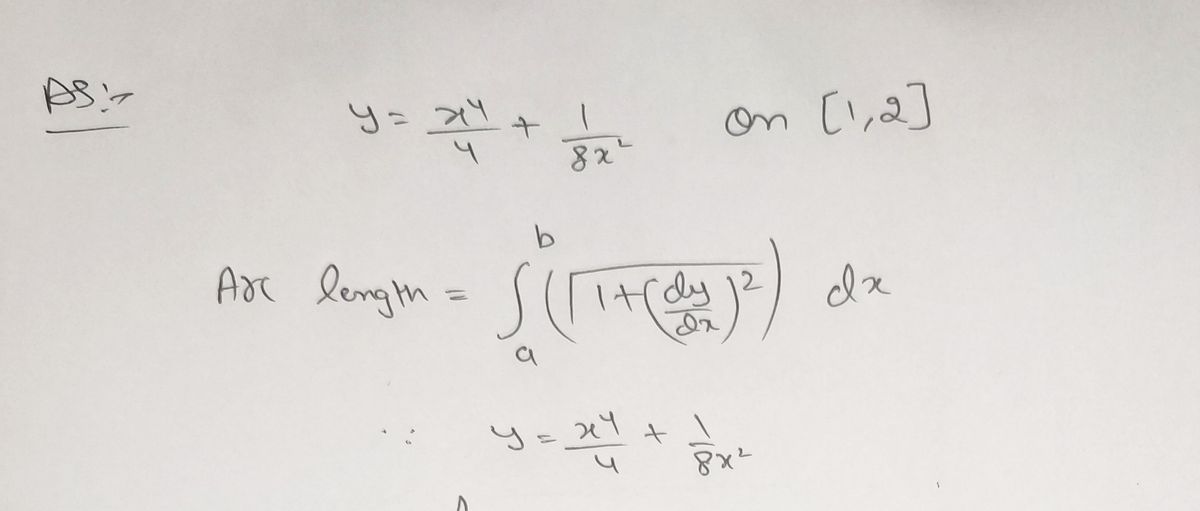 y = x⁴/4 + 1/8x² on [1,2]
Arc length = ∫ₐᵇ (√1+(dy/dx)²) dx
∵ y = x⁴/4 + 1/8x²